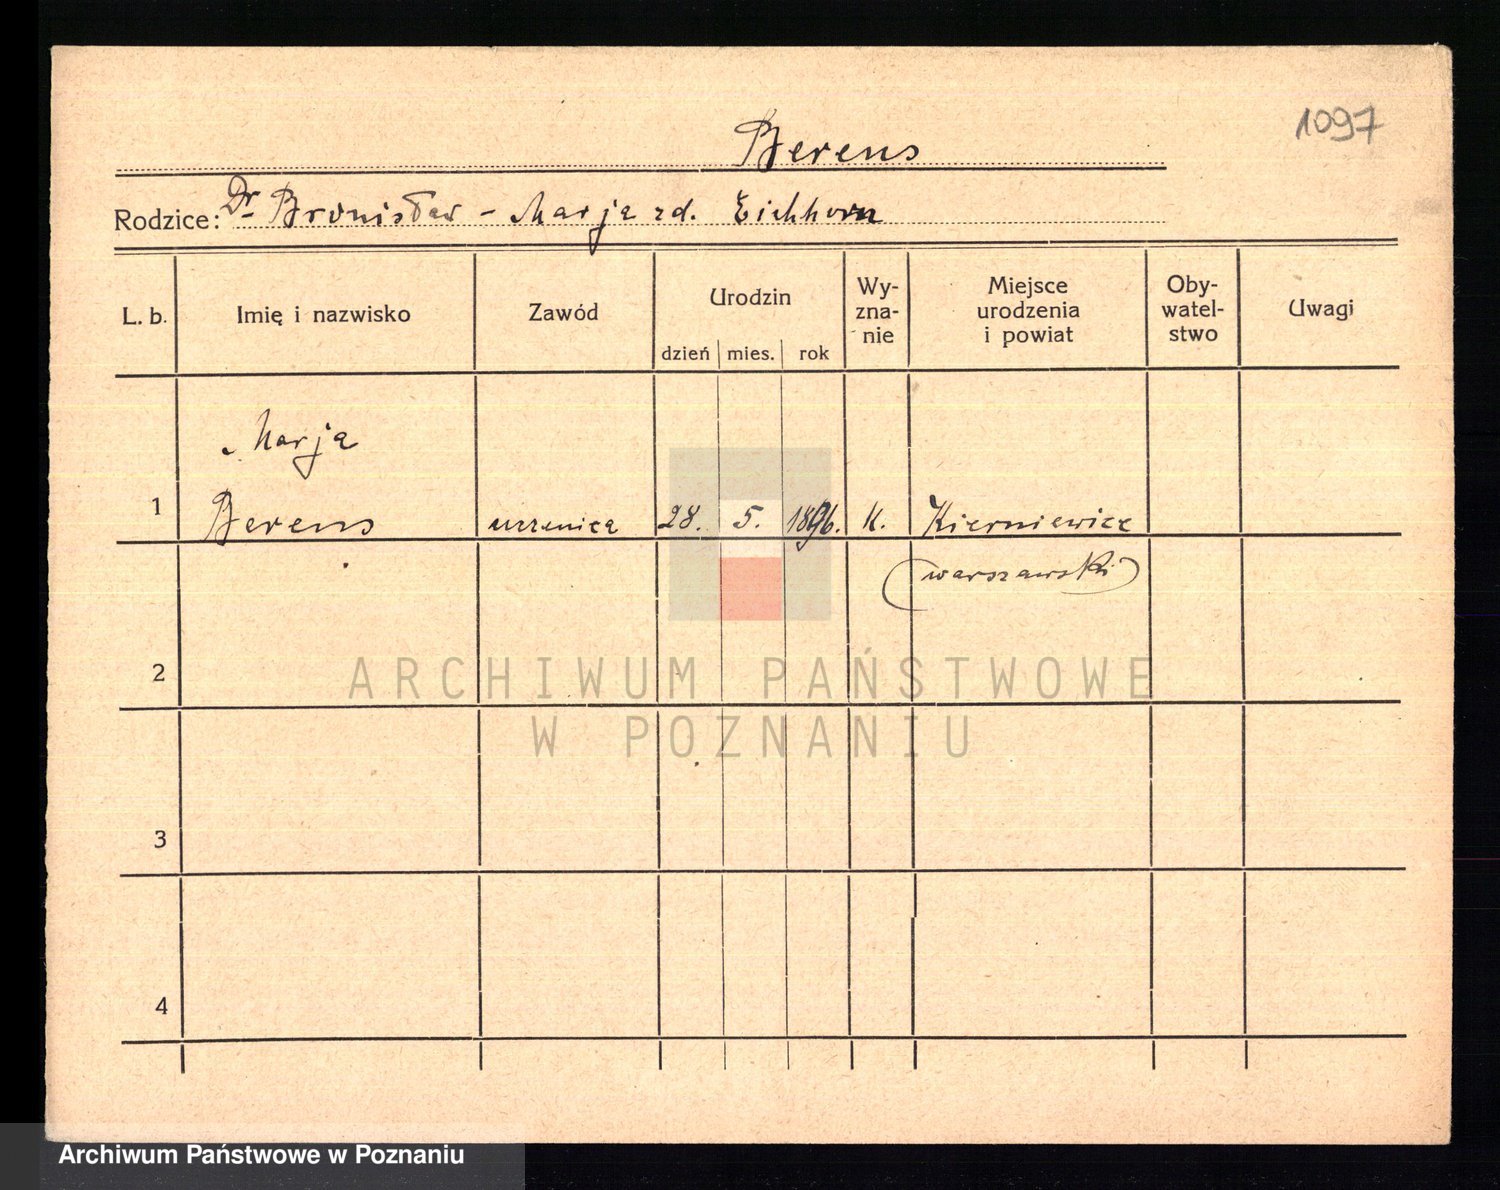 1097
Berens
Rodzice: Dr Bronisław - Marja zd. Eichhorn
L. b. Imię i nazwisko Zawód Urodzin Wy- zna- nie Miejsce urodzenia i powiat Oby- watel- stwo Uwagi
dzień mies. rok
Marja
1 Berens uczenica 28. 5. 1896. K. Kierniewice
(warszawski)
2
ARCHIWUM PAŃSTWOWE
W POZNANIU
3
4
Archiwum Państwowe w Poznaniu